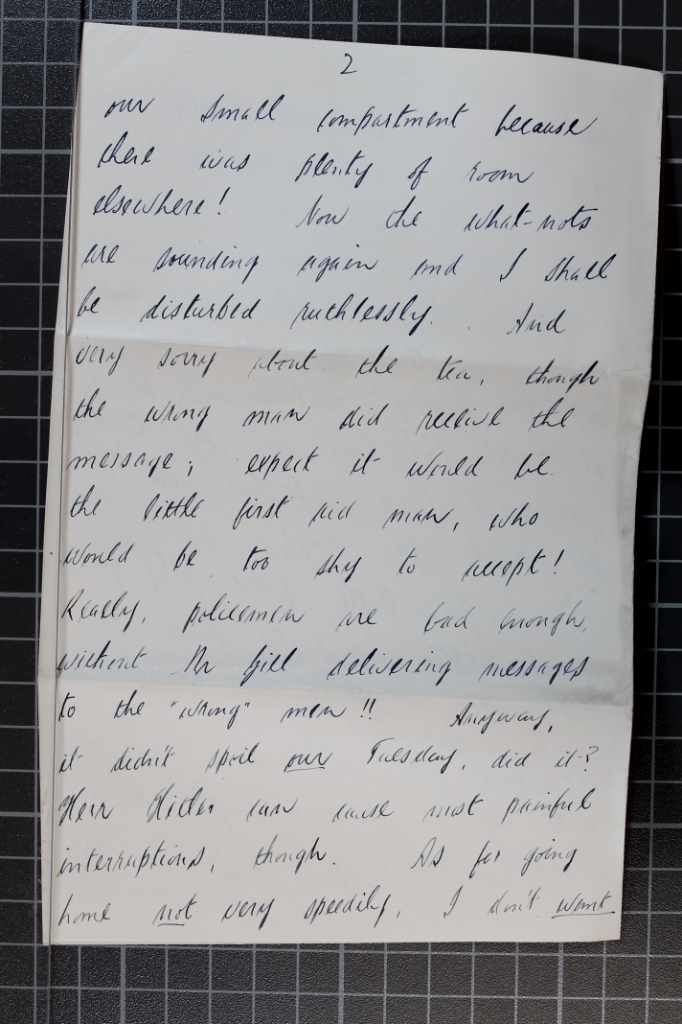 2
our small compartment because
there was plenty of room
elsewhere! Now the what-nots
are sounding again and I shall
be disturbed ruthlessly. And
very sorry about the tea, though
the wrong man did receive the
message; expect it would be
the little first aid man, who
would be too shy to accept!
Really, policemen are bad enough,
without Mr Gill delivering messages
to the "wrong" men!! Anyway,
it didn't spoil our Tuesday, did it?
Herr Hitler can cause most painful
interruptions, though. As for going
home not very speedily, I don't want